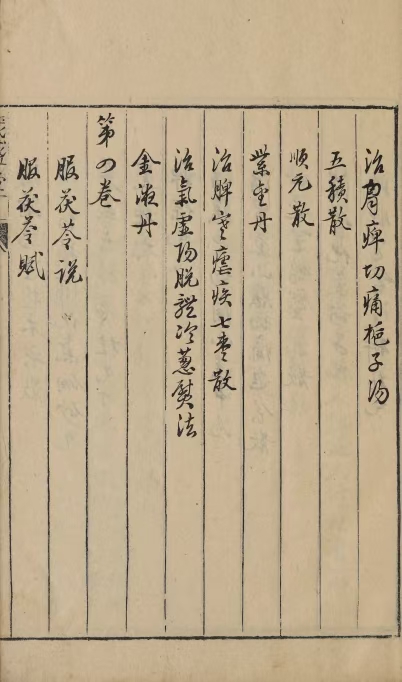 治胷痺切痛梔子湯
五積散
順元散
紫金丹
治脾寒瘧疾七棗散
治氣虛陽脫體冷蔥熨法
金液丹
第四卷
服茯苓說
服茯苓賦